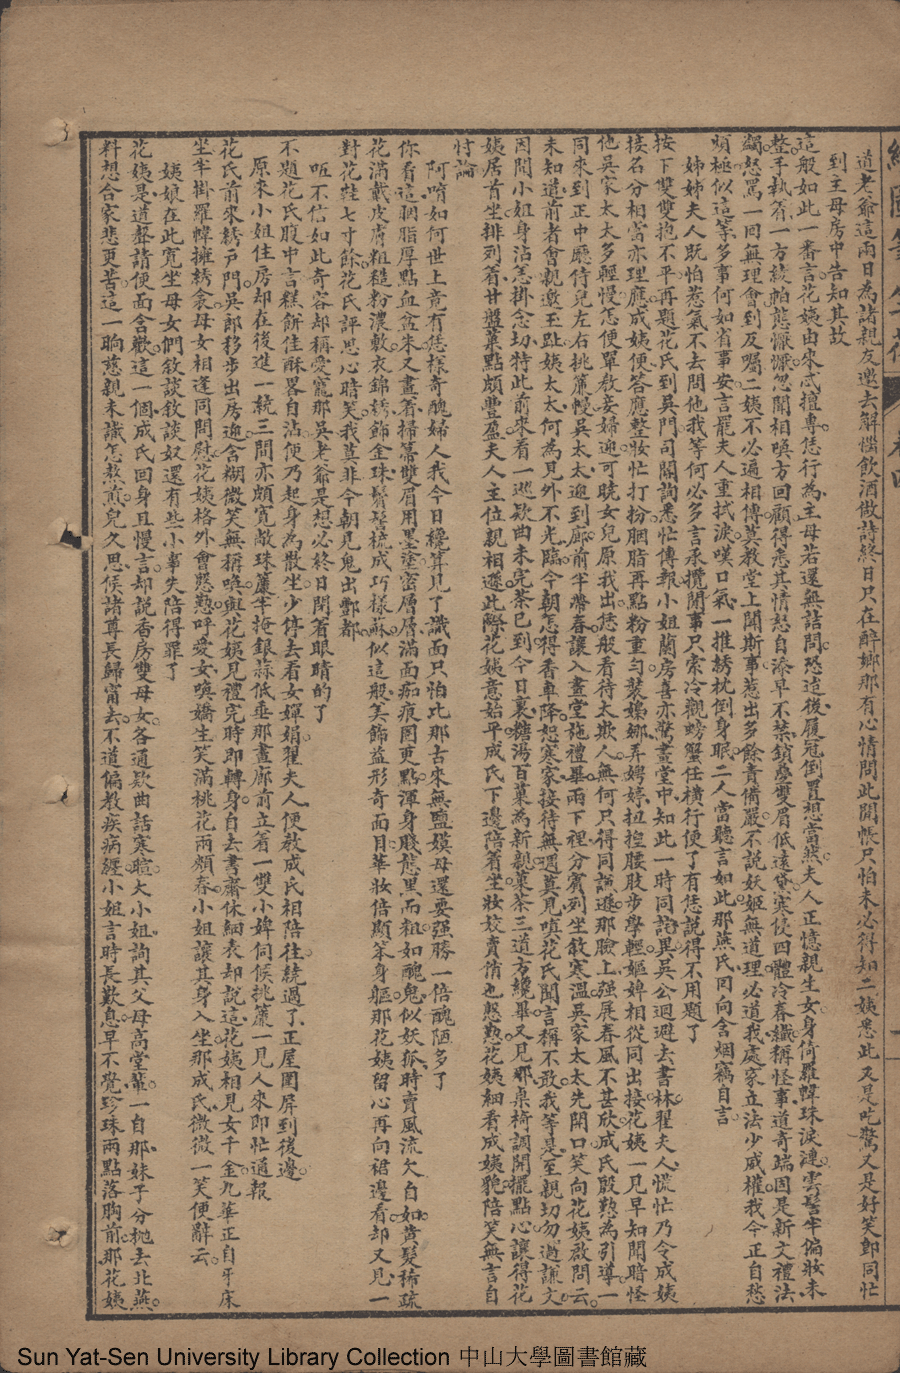 道老爺這兩日為諸親友邀去解悶飲酒做詩終日只在醉鄉那有心情問此閒帳只怕未必得知二姨悉此又是吃驚又是好笑即同忙
到主母房中告知其故
這般如此一番言花姨由來忒擅專恁行為主母若還無詰問恐造後履冠倒置想當然夫人正憶親生女身倚羅幃珠淚漣雲髻半偏妝未
整手執着一方綾帕態懨懨忽聞相喚方回顧得悉其情怒自添早不禁鎖蹙雙眉低遠黛寒侵四體冷春纖稱怪事道奇端因是新文禮法
蠲怒罵一回無理會到反囑二姨不必過相傳莫教堂上聞斯事惹出多餘責備嚴不說妖姬無道理必道我處家立法少威權我今正自愁
煩極似這等多事何如省事安言罷夫人重拭淚嘆口氣一推綉枕倒身眠二人當聽言如此那燕氏回向含烟竊自言
姊姊夫人既怕惹氣不去問他我等何必多言承攬閒事只索冷觀螃蟹任橫行便了有恁說得不用題了
按下雙雙抱不平再題花氏到吳門司閽詢悉忙傳報小姐蘭房喜亦驚畫堂中知此一時同詫異吳公迴避去書林翟夫人慌忙乃令成姨
接名分相當亦理應成姨便答應整妝忙打扮胭脂再點粉重勻裝嫋娜弄娉婷扭揑腰肢步學輕嫗婢相從同出接花姨一見早知聞暗怪
他吳家太太多輕慢怎便單教妾婦迎可曉女兒原我出恁般看待太欺人無何只得同謙遜那臉上強展春風不甚欣成氏殷勤為引導一
同來到正中廳侍兒左右挑簾幔吳太太迎到廊前半滯春讓入畫堂施禮畢兩下裡分賓列坐敘寒溫吳家太太先開口笑向花姨啟問云
未知道前者會親邀玉趾姨太太何為見外不光臨今朝怎得香車降恕寒家接待無週莫見嗔花氏聞言稱不敢我等是至親切勿過謙文
因聞小姐身沾恙掛念切特此前來看一巡欵曲未完茶已到今日裏糖湯百菓為新親菓茶三道方纔畢又見那桌椅調開擺點心讓得花
姨居首坐排列着廿盤菓點頗豐盈夫人主位親相遜此際花姨意始平成氏下邊陪着坐妝姣賣俏也慇懃花姨細看成姨貌陪笑無言自
忖論
阿唷如何世上竟有恁樣奇醜婦人我今日纔算見了識面只怕比那古來無鹽嫫母還要强勝一倍醜陋多了
你看這胭脂厚點血盆朱又畫着掃箒雙眉用墨塗密層層滿面痴痕圈更點渾身骰態黑而粗如醜鬼似妖狐時賣風流欠自如黄髮稀疏
花滿戴皮膚粗糙粉濃敷衣錦綉飾金珠鬢髻梳成巧樣蘇似這般美飾益形奇面目華妝倍顯笨身軀那花姨留心再向裙邊看却又見一
對花鞋七寸餘花氏評思心暗笑我豈非今朝見鬼出酆都
咂不信如此奇容却稱愛寵那吳老爺是想必終日閉着眼睛的了
不題花氏腹中言糕餅佳酥畧自沾便乃起身為散坐少停去看女嬋娟翟夫人便教成氏相陪往繞過了正屋圍屏到後邊
原來小姐住房却在後進一統三間亦頗寬敞珠簾半掩銀蒜低垂那畫廊前立着一雙小婢伺候挑簾一見人來即忙通報
花氏前來綉戶門吳郎移步出房迎含糊微笑無稱喚與花姨見禮完時即轉身自去書齋休細表却說這花姨相見女千金九華正自牙床
坐半掛羅幃擁綉衾母女相逢同問慰花姨格外會慇懃呼愛女喚嬌生笑滿桃花兩頰春小姐讓其身入坐那成氏微微一笑便辭云
姨娘在此寬坐母女們敘談敘談奴還有些小事失陪得罪了
花姨是道聲請便面含歡這一個成氏回身且慢言却說香房雙母女各通欵曲話寒暄大小姐詢其父母高堂輩一自那妹子分拋去北燕
料想合家悲更苦這一晌慈親未識怎熬煎兒久思候諸尊長歸甯去不道偏教疾病纏小姐言時長歎息早不覺珍珠兩點落胸前那花姨
Sun Yat-Sen University Library Collection 中山大學圖書館藏